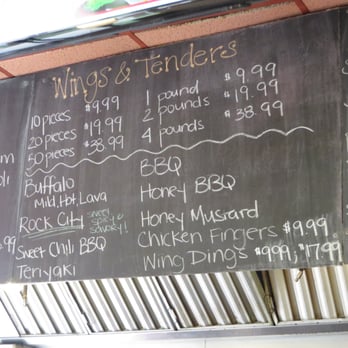 Wings & Tenders
10 pieces $9.99
20 pieces $19.99
50 pieces $38.99
1 pound $9.99
2 pounds $19.99
4 pounds $38.99
Buffalo
Mild, Hot, Lava
ROCK CITY sweet spicy & savory!
Sweet Chili BBQ
Teriyaki
BBQ
Honey BBQ
Honey Mustard
Chicken Fingers $9.99
Wing Dings $9.99, $17.99